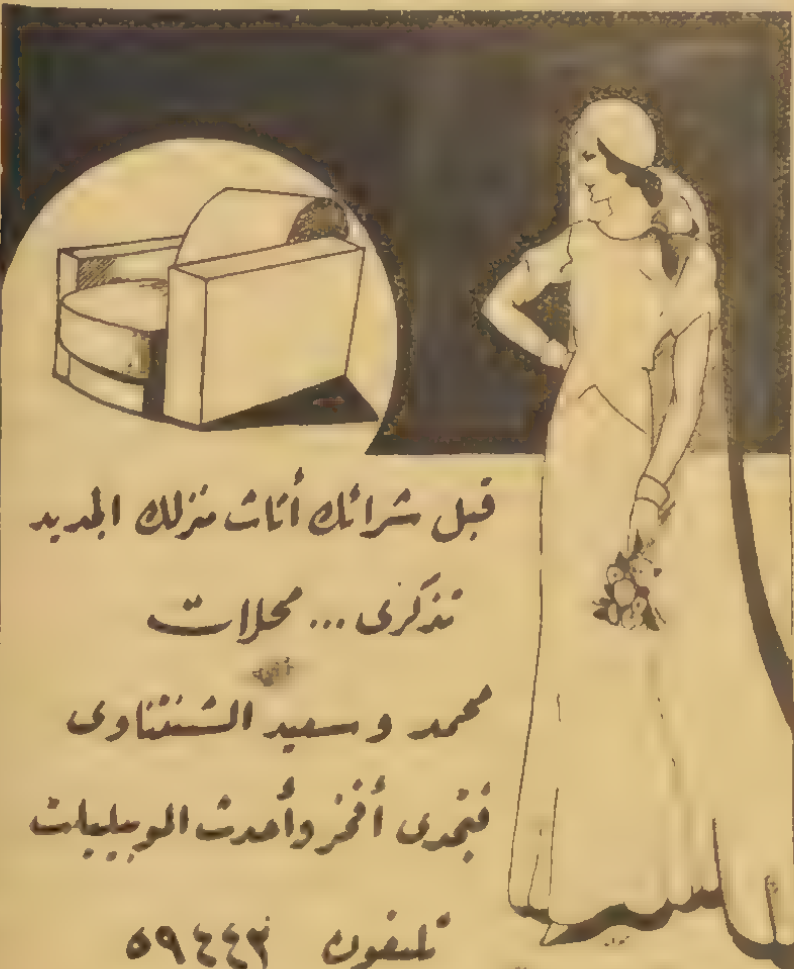 قبل شرائك أثاث منزلك الجديد
تذكرى ... محلات
محمد وسعيد الششتاوى
فتجدى أفخر وأحدث الموبيليات
تليفون ٥٩٤٤٢